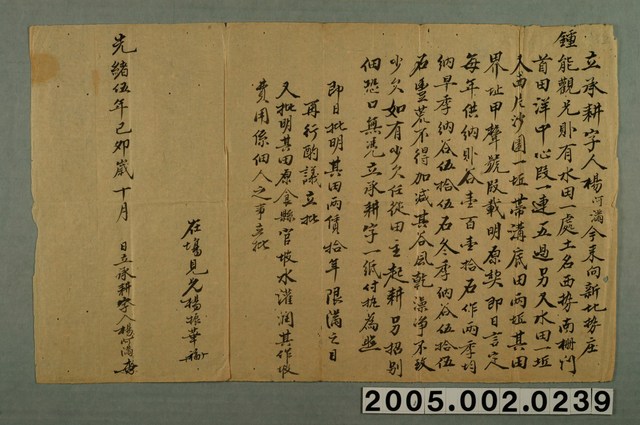 立承耕字人楊阿滿今來向新北勢庄
鍾能觀兄卽有水田一處土名西勢南柵門
首田洋中心段一連五過另又水田坵
又南片沙園一坵帶溝底田兩坵其田
界址甲聲號段載明原契即日言定
每年供納卽谷壹百壹十石作兩季均
納早季納谷伍拾伍石冬季納谷伍拾伍
石豐荒不得加減其谷風乾溙净不敢
少欠如有少欠任從田主起耕另招別
佃恐口無凭立承耕字一紙付执為照
即日批明其田兩賃拾年限滿之日
再行酌議立批
又批明其田原食縣官坡水灌潤其作坡
費用係佃人之事立批
在場見兄楊振華
光緒伍年己卯嵗十月 日立承耕字人楊阿滿
2005.002.0239